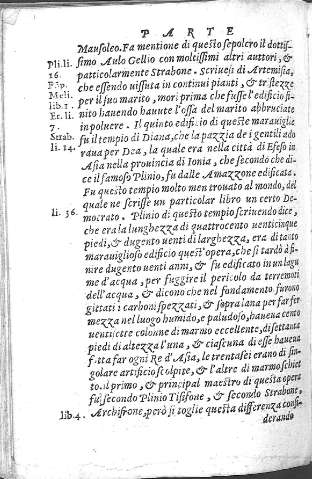 PARTE
Mausoleo. Fa mentione di questo sepolcro il dottis-
simo Aulo Gellio con moltissimi altri auttori, &
patticolarmente Strabone. Scriuesi di Artemisia,
che essendo uissuta in continui pianti, & tristezze
per il suo marito, mori prima che fusse l'edificio fi-
nito hauendo hauute l'ossa del marito abbruciate
in poluere. Il quinto edificio di queste marauiglia
fu il tempio di Diana, che la pazzia de i gentili ado
raua per Dea, la quale era nella città di Efeso in
Asia nella prouincia di Ionia, che secondo che di-
ce il famoso Plinio, fu dalle Amazzone edificata.
Fu questo tempio molto men trouato al mondo, del
quale ne scrisse un particolar libro un certo De-
mocrato. Plinio di questo tempio scriuendo dice,
che era la lunghezza di quattrocento uenticinque
piedi, & dugento uenti di larghezza, era di tanto
marauiglioso edificio quest'opera, che si tardò à fi-
nire dugento uenti anni, & fu edificato in un lagu
me d'acqua, per fuggire il pericolo da terremoti
dell'acqua, & dicono che nel fundamento furono
gittati i carboni spezzati, & sopra lana per far fer
mezza nel luogo humido, e paludoso, haueua cento
uentisette colonne di marmo eccellente, di settanta
piedi di altezza l'una, & ciascuna di esse haueua
fatta far ogni Re d'Asia, le trentasei erano di sin-
golare artificio scolpite, & l'altre di marmo schiet
to. il primo, & principal maestro di questa opera
fu, secondo Plinio Tisifone, & secondo Strabone,
Archifrone, però si toglie questa differenza consi-
derando
Pli. li.
16.
Pōp.
Meli.
lib. 1.
Et. li.
7.
Strab.
li. 14.
li. 36.
lib 4.